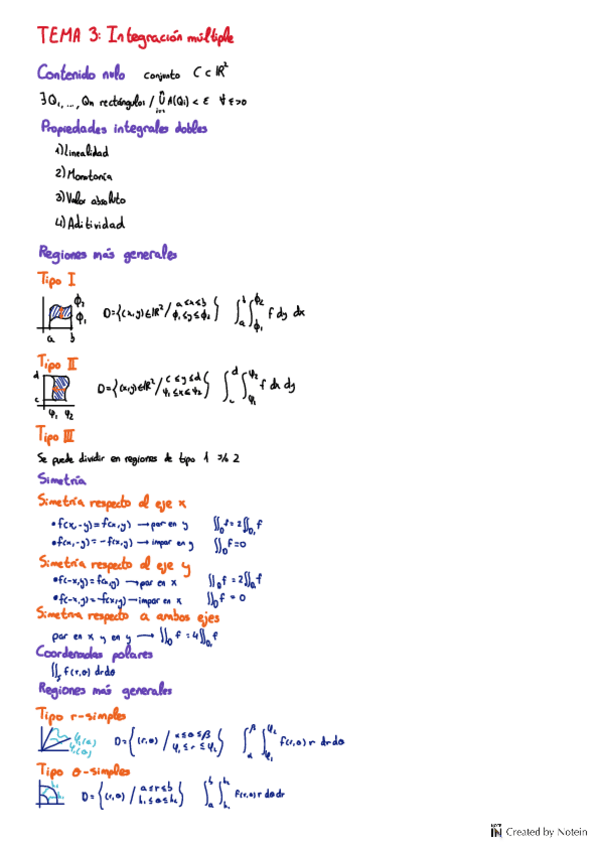 TEMA 3: Integración múltiple
Contenido nulo conjunto C ⊂ ℝ²
∃ Q₁, ..., Qn rectángulos / Ü A(Qi) < ε ∀ ε>0
i=1
Propiedades integrales dobles
1) Linealidad
2) Monotonía
3) Valor absoluto
4) Aditividad
Regiones más generales
Tipo I
ϕ₂ ϕ₁ a b D={(x,y)∈ℝ² / a≤x≤b ϕ₁≤y≤ϕ₂} ∫ₐᵇ ∫ϕ₁^ϕ₂ f dy dx
Tipo II
d c ψ₁ ψ₂ D={(x,y)∈ℝ² / c≤y≤d ψ₁≤x≤ψ₂} ∫c^d ∫ψ₁^ψ₂ f dx dy
Tipo III
Se puede dividir en regiones de tipo 1 2
Simetría
Simetría respecto al eje x
• f(x,-y)=f(x,y) → par en y ∬D f = 2∬D₁ f
• f(x,-y)=-f(x,y) → impar en y ∬D f=0
Simetría respecto al eje y
• f(-x,y)=f(x,y) → par en x ∬D f = 2∬D₁ f
• f(-x,y)=-f(x,y) → impar en x ∬D f = 0
Simetría respecto a ambos ejes
par en x y en y → ∬D f = 4∬D₁ f
Coordenadas polares
∬ f(r,θ) drdθ
Regiones más generales
Tipo r-simples
ψ₂(θ) ψ₁(θ) D={(r,θ) / α≤θ≤β ψ₁≤r≤ψ₂} ∫α^β ∫ψ₁^ψ₂ f(r,θ) r dr dθ
Tipo θ-simples
D={(r,θ) / a≤r≤b h₁≤θ≤h₂} ∫ₐᵇ ∫h₁^h₂ f(r,θ) r dθ dr
NOTE IN Created by Notein